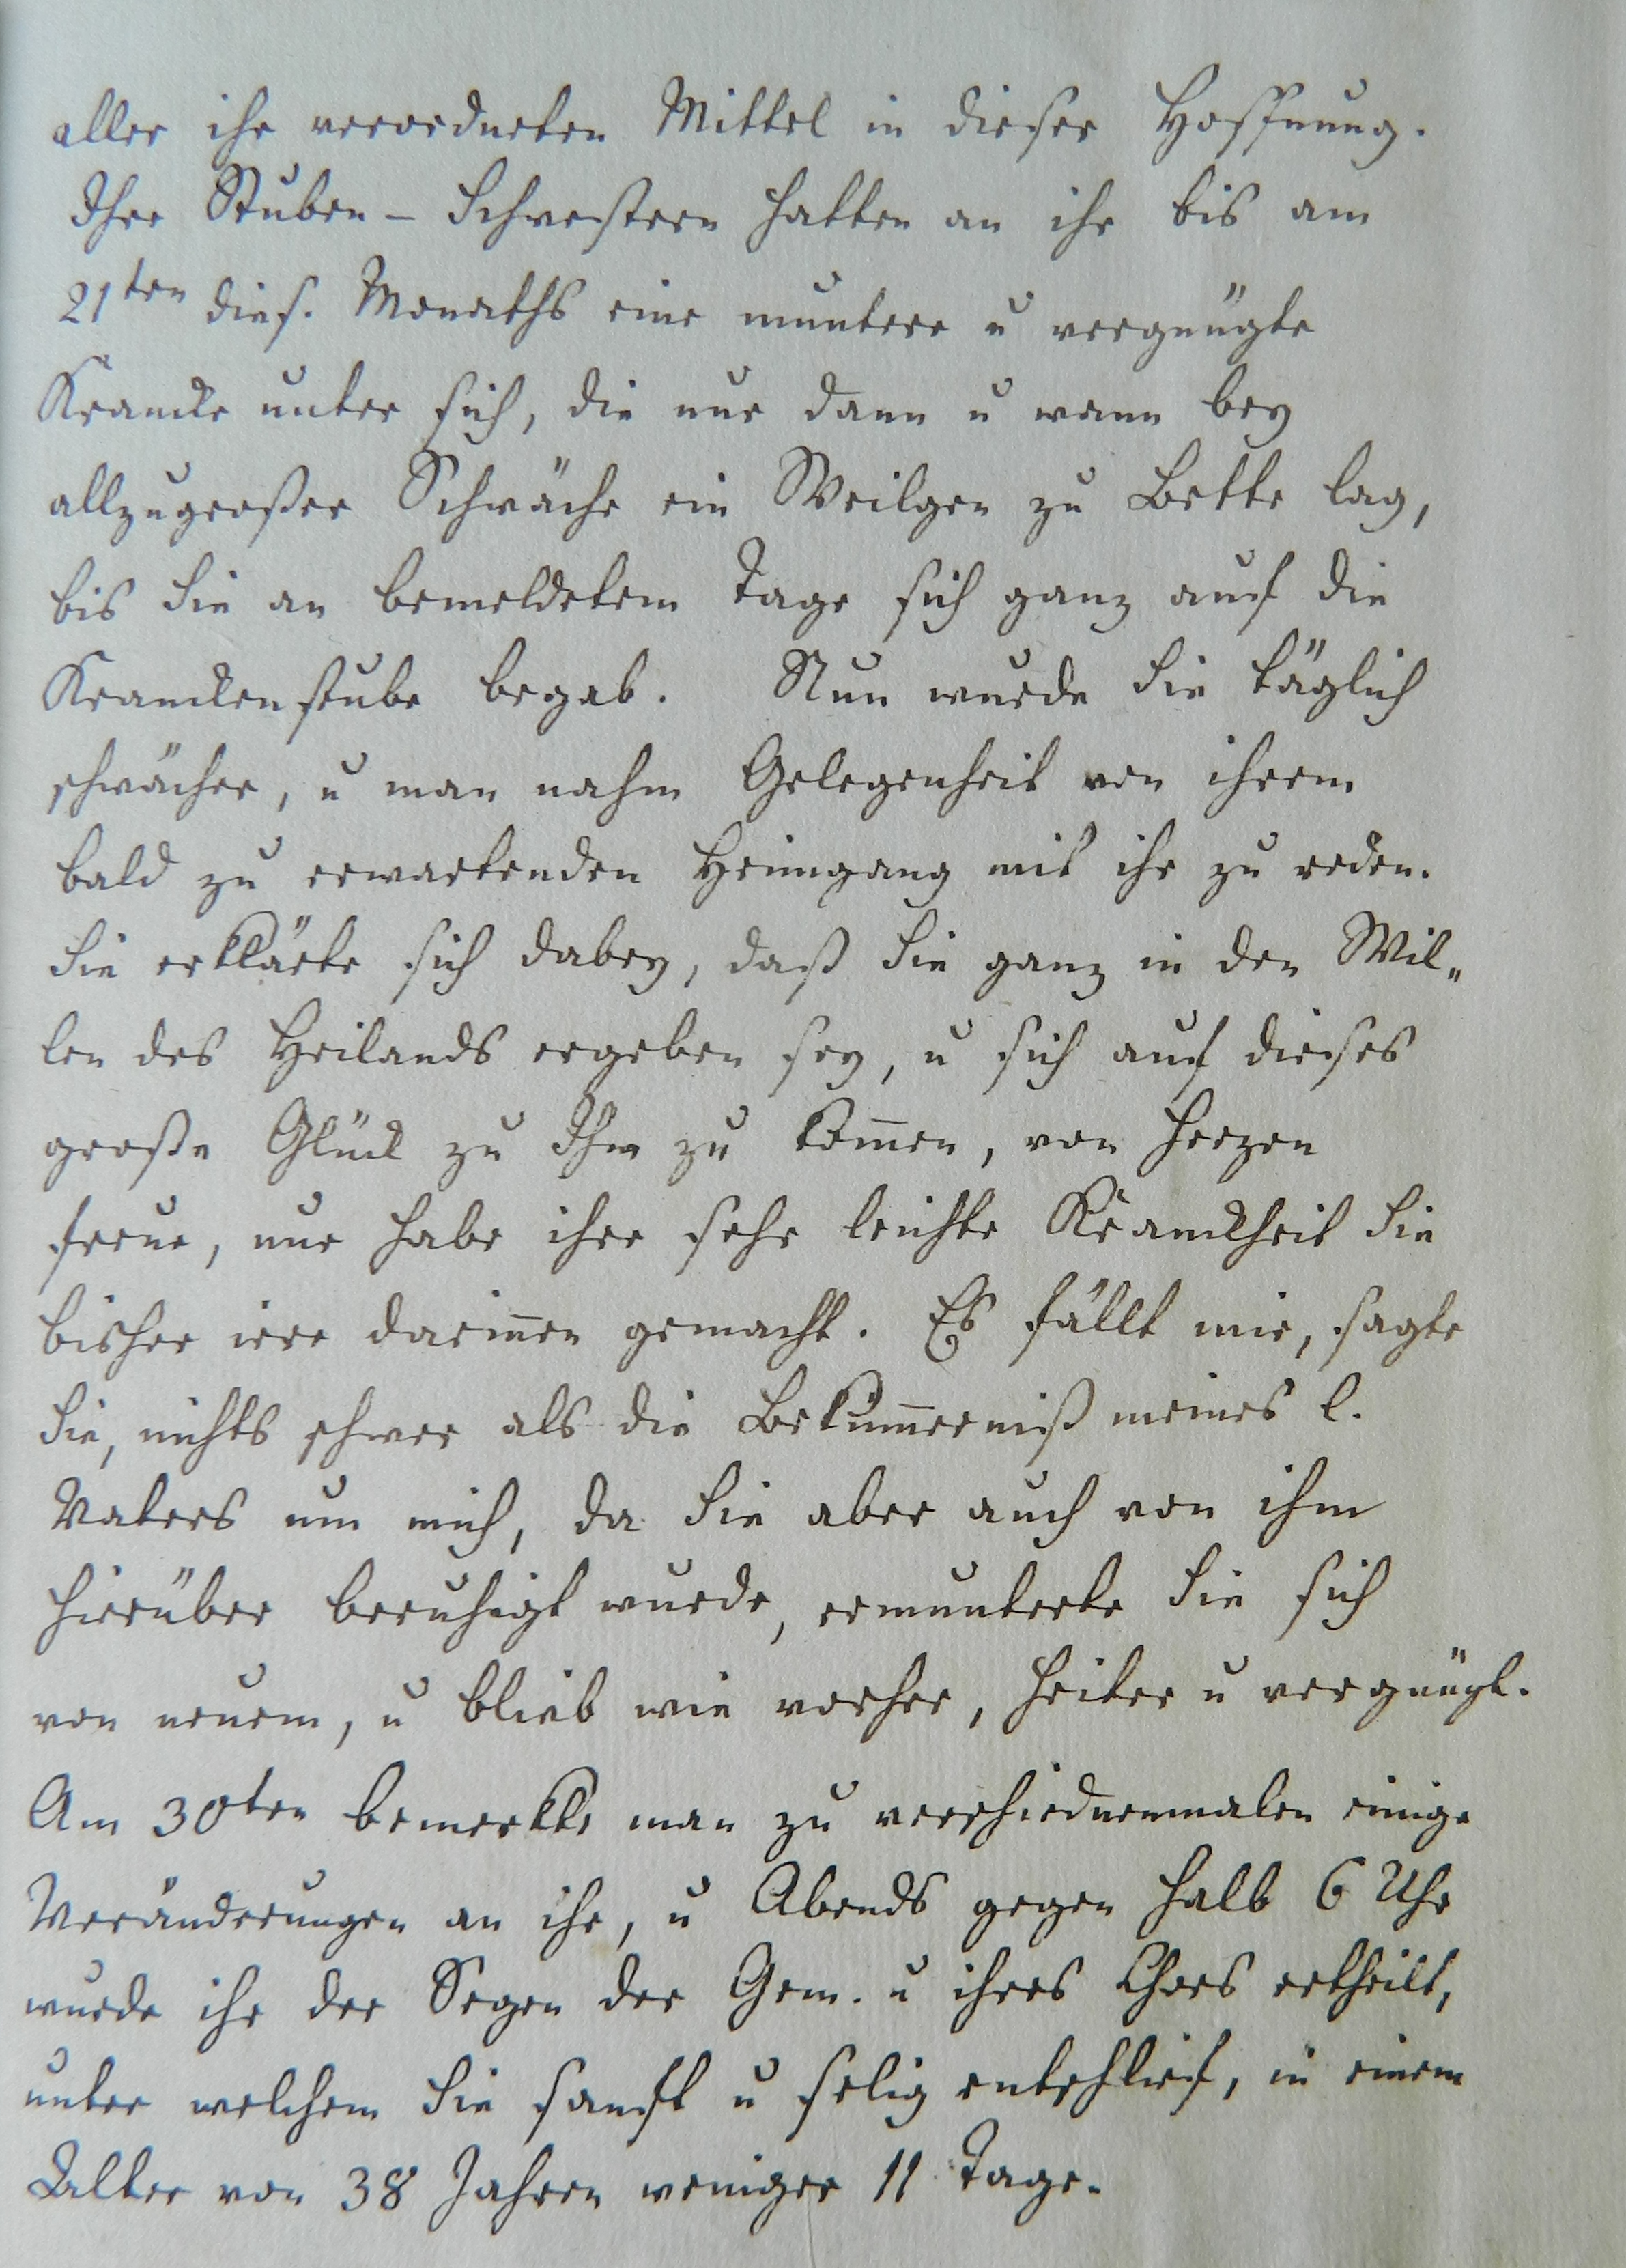 aller ihr verordneten Mittel in dieser Hoffnung.
Ihre Stuben-Schwestern hatten an ihr bis am
21ten dies. Monaths eine muntere u vergnügte
Krancke unter sich, die nur dann u wann bey
allzugroßer Schwäche ein Weilgen zu Bette lag,
bis Sie an bemeldetem Tage sich ganz auf die
Kranckenstube begab. Nun wurde Sie täglich
schwächer, u man nahm Gelegenheit von ihrem
bald zu erwartenden Heimgang mit ihr zu reden.
Sie erklärte sich dabey, daß Sie ganz in den Wil„
len des Heilands ergeben sey, u sich auf dieses
große Glück zu Ihm zu kom̄en, von Herzen
freue, nur habe ihre sehr leichte Kranckheit Sie
bisher irre darin̄en gemacht. Es fällt mir, sagte
Sie, nichts schwer als die Beküm̄erniß meines l.
Vaters um mich, da Sie aber auch von ihm
hierüber beruhigt wurde, ermunterte Sie sich
von neuem, u blieb wie vorher, heiter u vergnügt.
Am 30ten bemerkte man zu verschiednenmalen einige
Veränderungen an ihr, u Abends gegen halb 6 Uhr
wurde ihr der Segen der Gem. u ihres Chors ertheilt,
unter welchem Sie sanft u selig entschlief, in einem
Alter von 38 Jahren weniger 11 Tage.